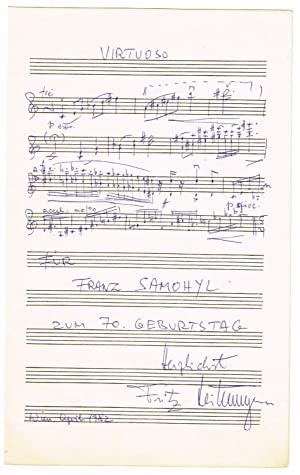 VIRTUOSO
frei
8
p
accel. molto
FÜR
FRANZ SAMOHYL
ZUM 70. GEBURTSTAG
Herzlichst
Fritz Leitermeyer
Wien April 1982